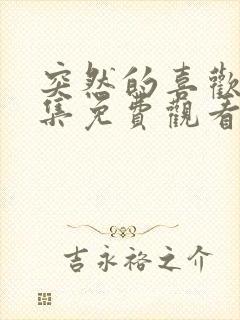 突然的喜歡
集免費觀看
吉永裕之介